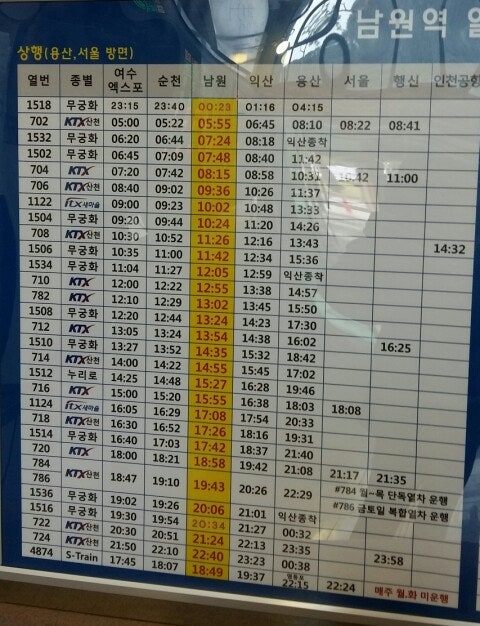 남원역
상행(용산,서울 방면)
열번 종별 여수엑스포 순천 남원 익산 용산 서울 행신 인천공항
1518 무궁화 23:15 23:40 00:23 01:16 04:15
702 KTX산천 05:00 05:22 05:55 06:45 08:10 08:22 08:41
1532 무궁화 06:20 06:44 07:24 08:18 익산종착
1502 무궁화 06:45 07:09 07:48 08:40 11:42
704 KTX 07:20 07:42 08:15 08:58 10:31 10:42 11:00
706 KTX산천 08:40 09:02 09:36 10:26 11:37
1122 itx새마을 09:00 09:23 10:02 10:48 13:33
1504 무궁화 09:20 09:44 10:24 11:20 14:26
708 KTX산천 10:30 10:52 11:26 12:16 13:43 14:32
1506 무궁화 10:35 11:00 11:42 12:34 15:36
1534 무궁화 11:04 11:27 12:05 12:59 익산종착
710 KTX 12:00 12:22 12:55 13:38 14:57
782 KTX 12:10 12:29 13:02 13:45 15:50
1508 무궁화 12:20 12:44 13:24 14:23 17:30
712 KTX 13:05 13:24 13:54 14:38 16:02 16:25
1510 무궁화 13:27 13:52 14:35 15:32 18:42
714 KTX산천 14:00 14:22 14:55 15:45 17:02
1512 누리로 14:25 14:48 15:27 16:28 19:46
716 KTX 15:00 15:20 15:55 16:38 18:03 18:08
1124 itx새마을 16:05 16:29 17:08 17:54 20:33
718 KTX산천 16:30 16:52 17:26 18:16 19:31
1514 무궁화 16:40 17:03 17:42 18:37 21:40
720 KTX 18:00 18:21 18:58 19:42 21:08 21:17 21:35
784
786 KTX산천 18:47 19:10 19:43 20:26 22:29 #784 월~목 단독열차 운행
#786 금토일 복합열차 운행
1536 무궁화 19:02 19:26 20:06 21:01 익산종착
1516 무궁화 19:30 19:54 20:34 21:27 00:32
722 KTX산천 20:30 20:51 21:24 22:13 23:35 23:58
724 KTX산천 21:50 22:10 22:40 23:23 00:38
4874 S-Train 17:45 18:07 18:49 19:37 영등포 22:15 22:24 매주 월,화 미운행